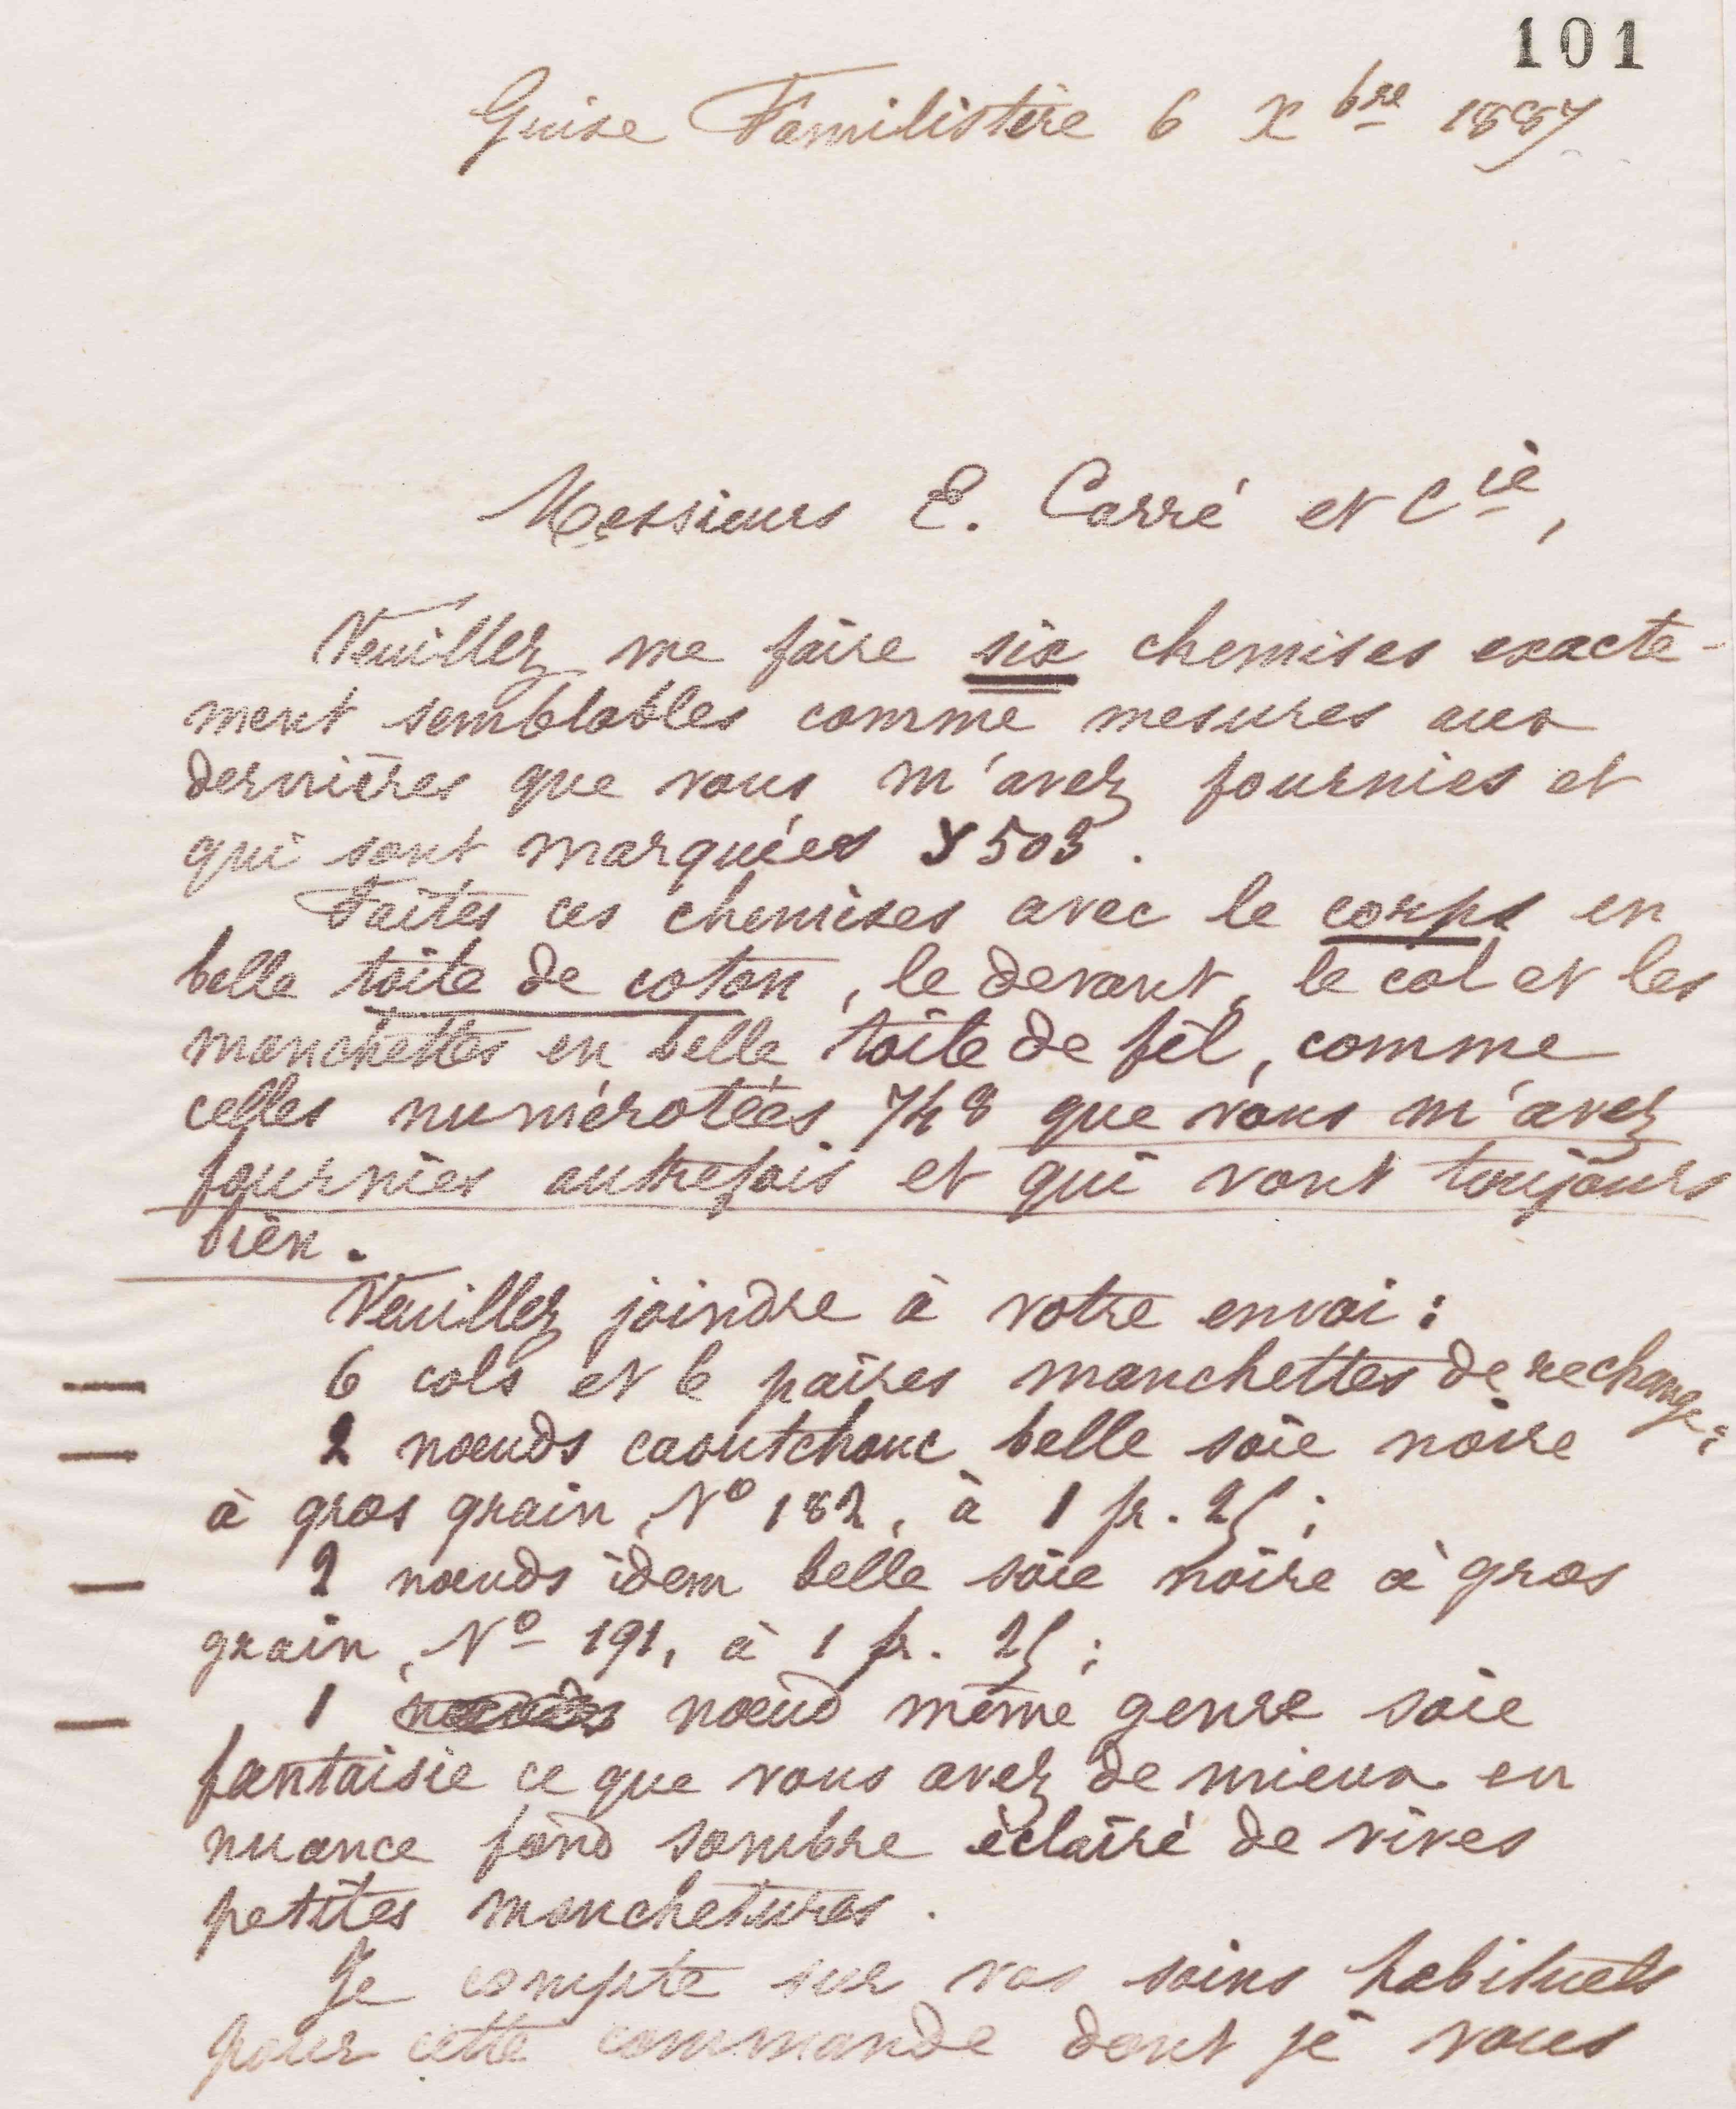 101
Guise Familistère 6 Xbre 1887
Messieurs E. Carré et Cie,
Veuillez me faire six chemises exacte-
ment semblables comme mesures aux
dernières que vous m'avez fournies et
qui sont marquées 8503.
Faites ces chemises avec le corps en
belle toile de coton, le devant, le col et les
manchettes en belle toile de fil, comme
celles numérotées 748 que vous m'avez
fournies autrefois et qui vont toujours
bien.
Veuillez joindre à votre envoi :
— 6 cols et 6 paires manchettes de rechange ;
— 2 nœuds caoutchouc belle soie noire
à gros grain, No 182, à 1 fr. 25 ;
— 2 nœuds idem belle soie noire à gros
grain, No 191, à 1 fr. 25 ;
— 1 nœud même genre soie
fantaisie ce que vous avez de mieux en
nuance fond sombre éclairé de vives
petites mouchetures.
Je compte sur vos soins habituels
pour cette commande dont je vous